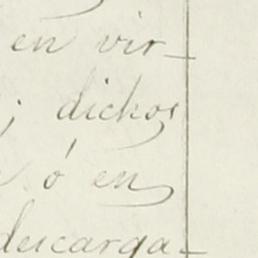 en vir-
; dichos
ó en
descarga-